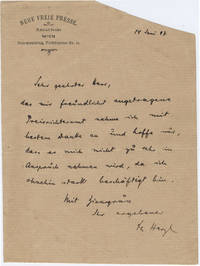 NEUE FREIE PRESSE.
Redaction
WIEN
14 Juni 97
Sehr geehrter Herr,
das mir freundlichst angetragene
Preisrichteramt nehme ich mit
bestem Danke an und hoffe nur,
dass es mich nicht zu sehr in
Anspruch nehmen wird, da ich
ohnehin stark beschäftigt bin.
Mit Grüssen
Ihr ergebener
Th Herzl